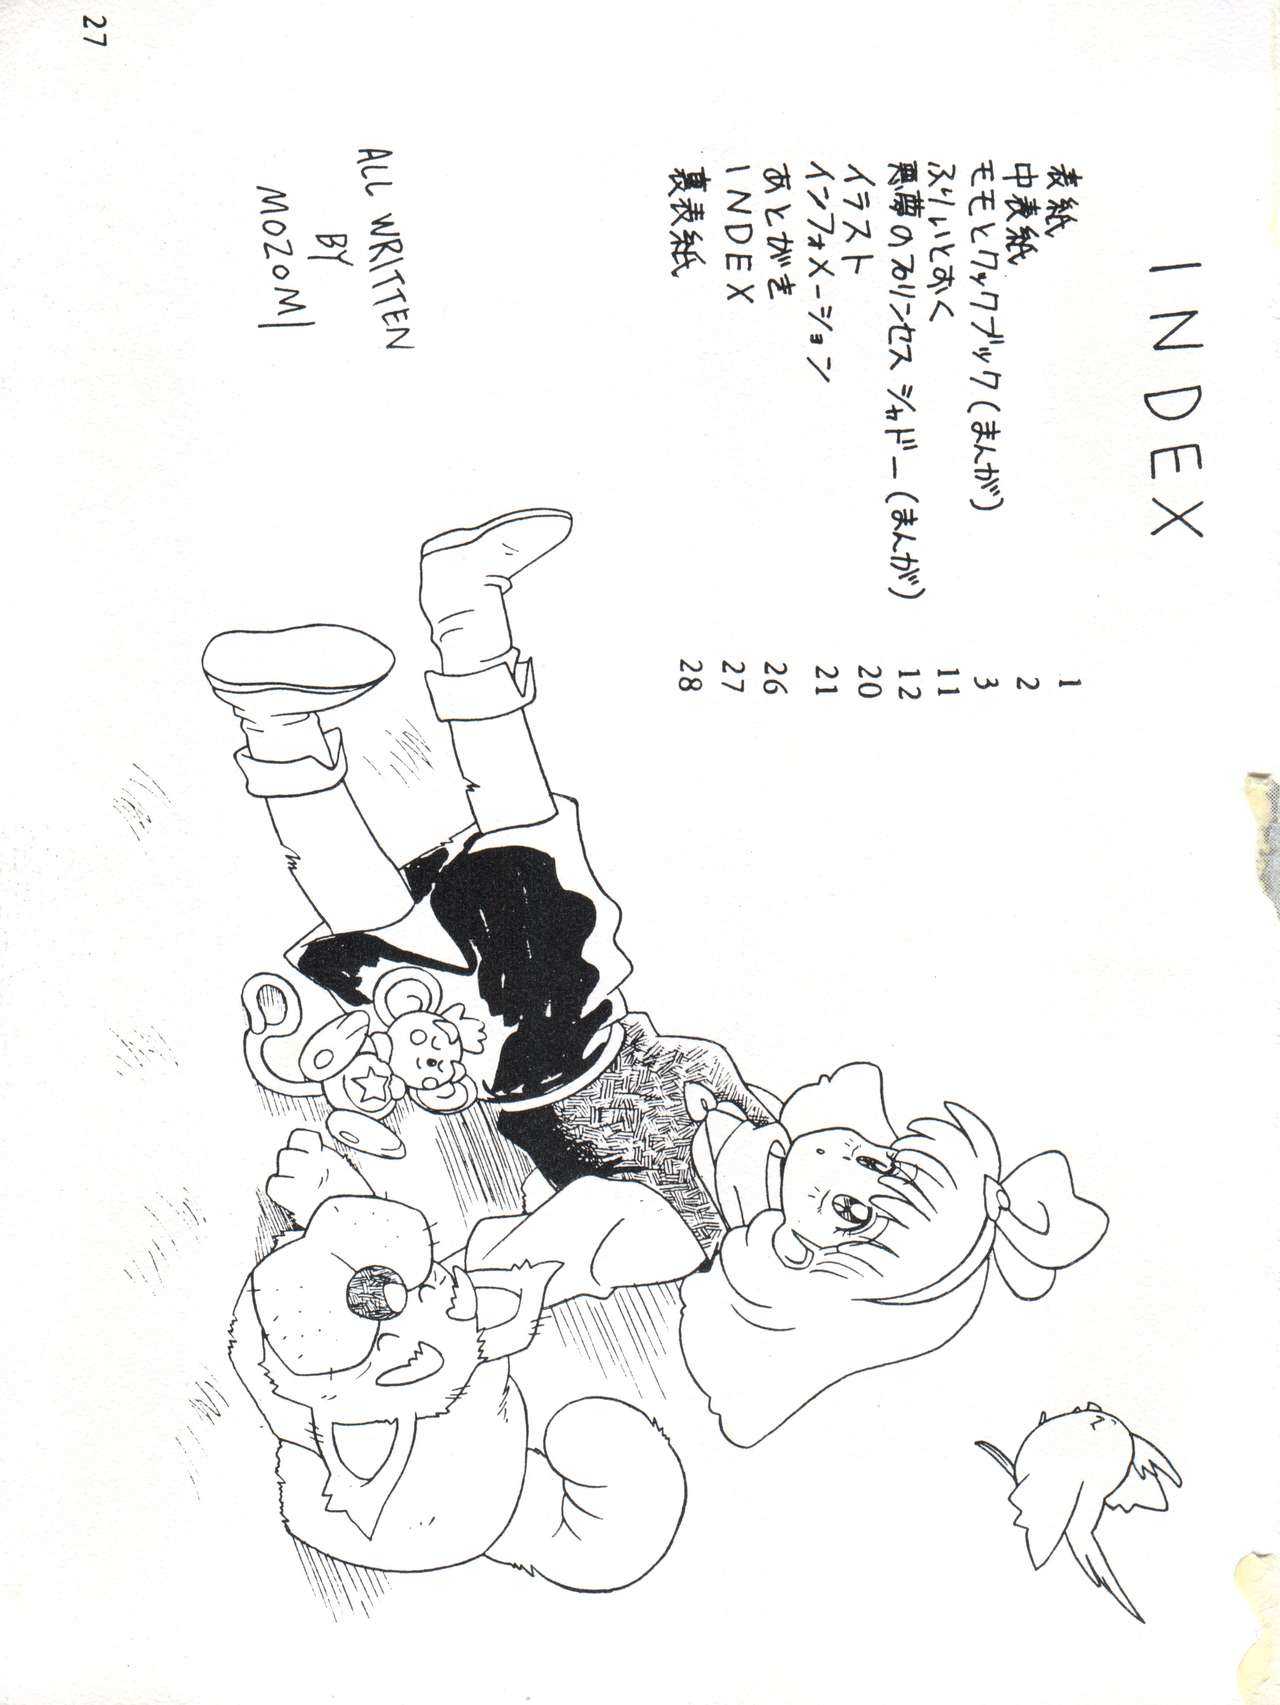 INDEX
表紙 1
中表紙 2
モモとクックブック(まんが) 3
ふりいとおく 11
悪夢のプリンセスシャドー(まんが) 12
イラスト 20
インフォメーション 21
あとがき 26
INDEX 27
裏表紙 28
ALL WRITTEN
BY
MOZOMI
27